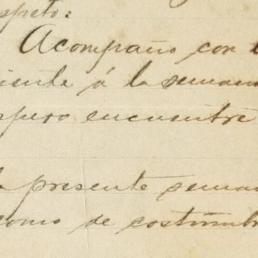 speto:
Acompaño con l
iente á la seman
spero encuentre
presente seman
como de costumbr